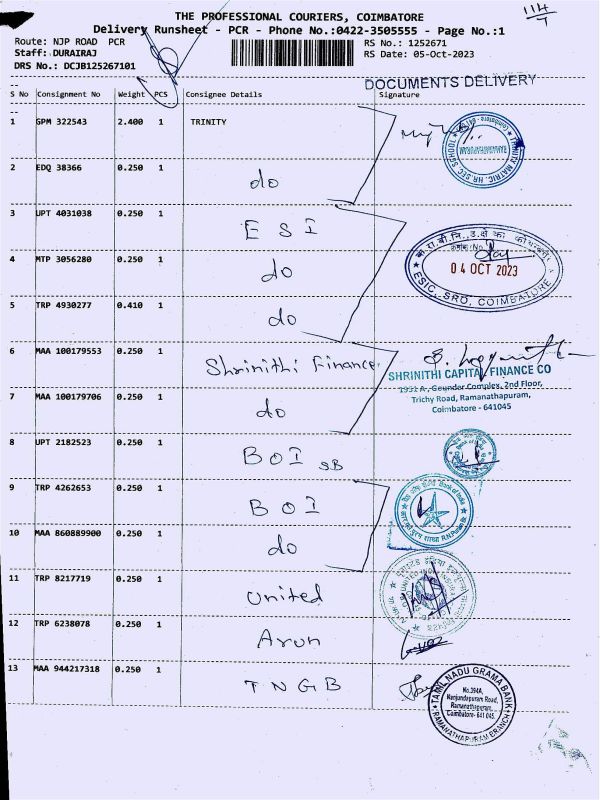 THE PROFESSIONAL COURIERS, COIMBATORE
Delivery Runsheet - PCR - Phone No.:0422-3505555 - Page No.:1
Route: NJP ROAD PCR
RS No.: 1252671
Staff: DURAIRAJ
RS Date: 05-Oct-2023
DRS No.: DCJB125267101
DOCUMENTS DELIVERY
S No Consignment No Weight PCS Consignee Details Signature
1 GPM 322543 2.400 1 TRINITY
TRINITY MATRIC. HR. SEC. SCHOOL
RAMANATHAPURAM
2 EDQ 38366 0.250 1 do
3 UPT 4031038 0.250 1 ESI
4 MTP 3056280 0.250 1 do
04 OCT 2023
ESIC, SRO, COIMBATORE
5 TRP 4930277 0.410 1 do
6 MAA 100179553 0.250 1 Shrinithi Finance
SHRINITHI CAPITAL FINANCE CO
1951 A, Gounder Complex, 2nd Floor,
Trichy Road, Ramanathapuram,
Coimbatore - 641045
7 MAA 100179706 0.250 1 do
8 UPT 2182523 0.250 1 BOI SB
9 TRP 4262653 0.250 1 BOI
10 MAA 860889900 0.250 1 do
11 TRP 8217719 0.250 1 United
12 TRP 6238078 0.250 1 Arun
13 MAA 944217318 0.250 1 TNGB
TAMIL NADU GRAMA BANK
No.394A,
Nanjundapuram Road,
Ramanathapuram,
Coimbatore- 641 045
RAMANATHAPURAM BRANCH